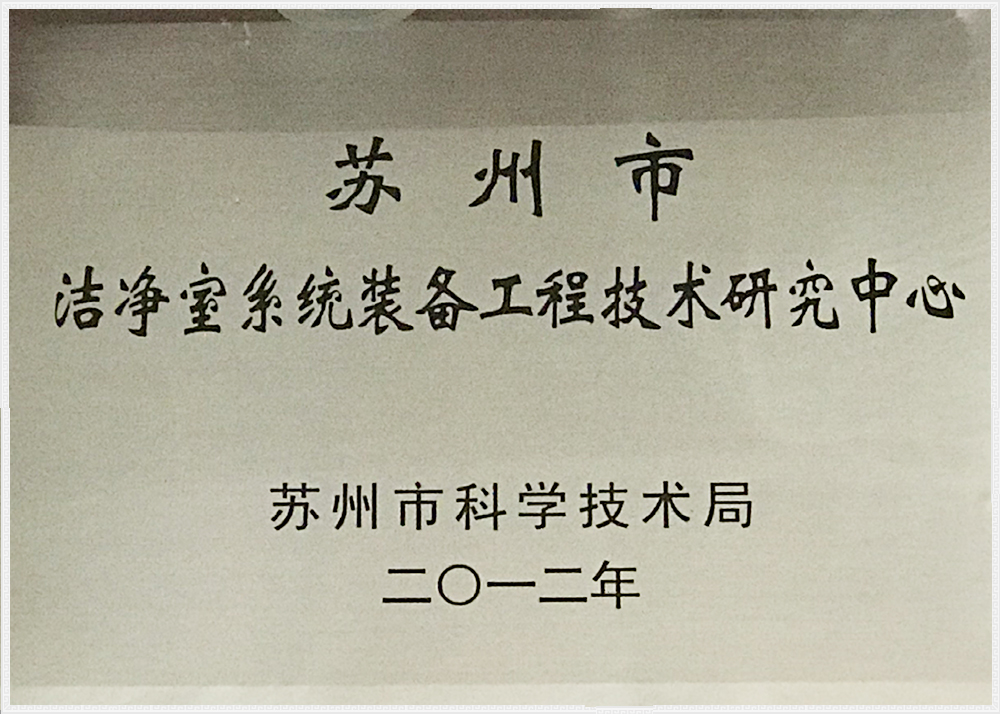 苏州市
洁净室系统装备工程技术研究中心
苏州市科学技术局
二〇一二年